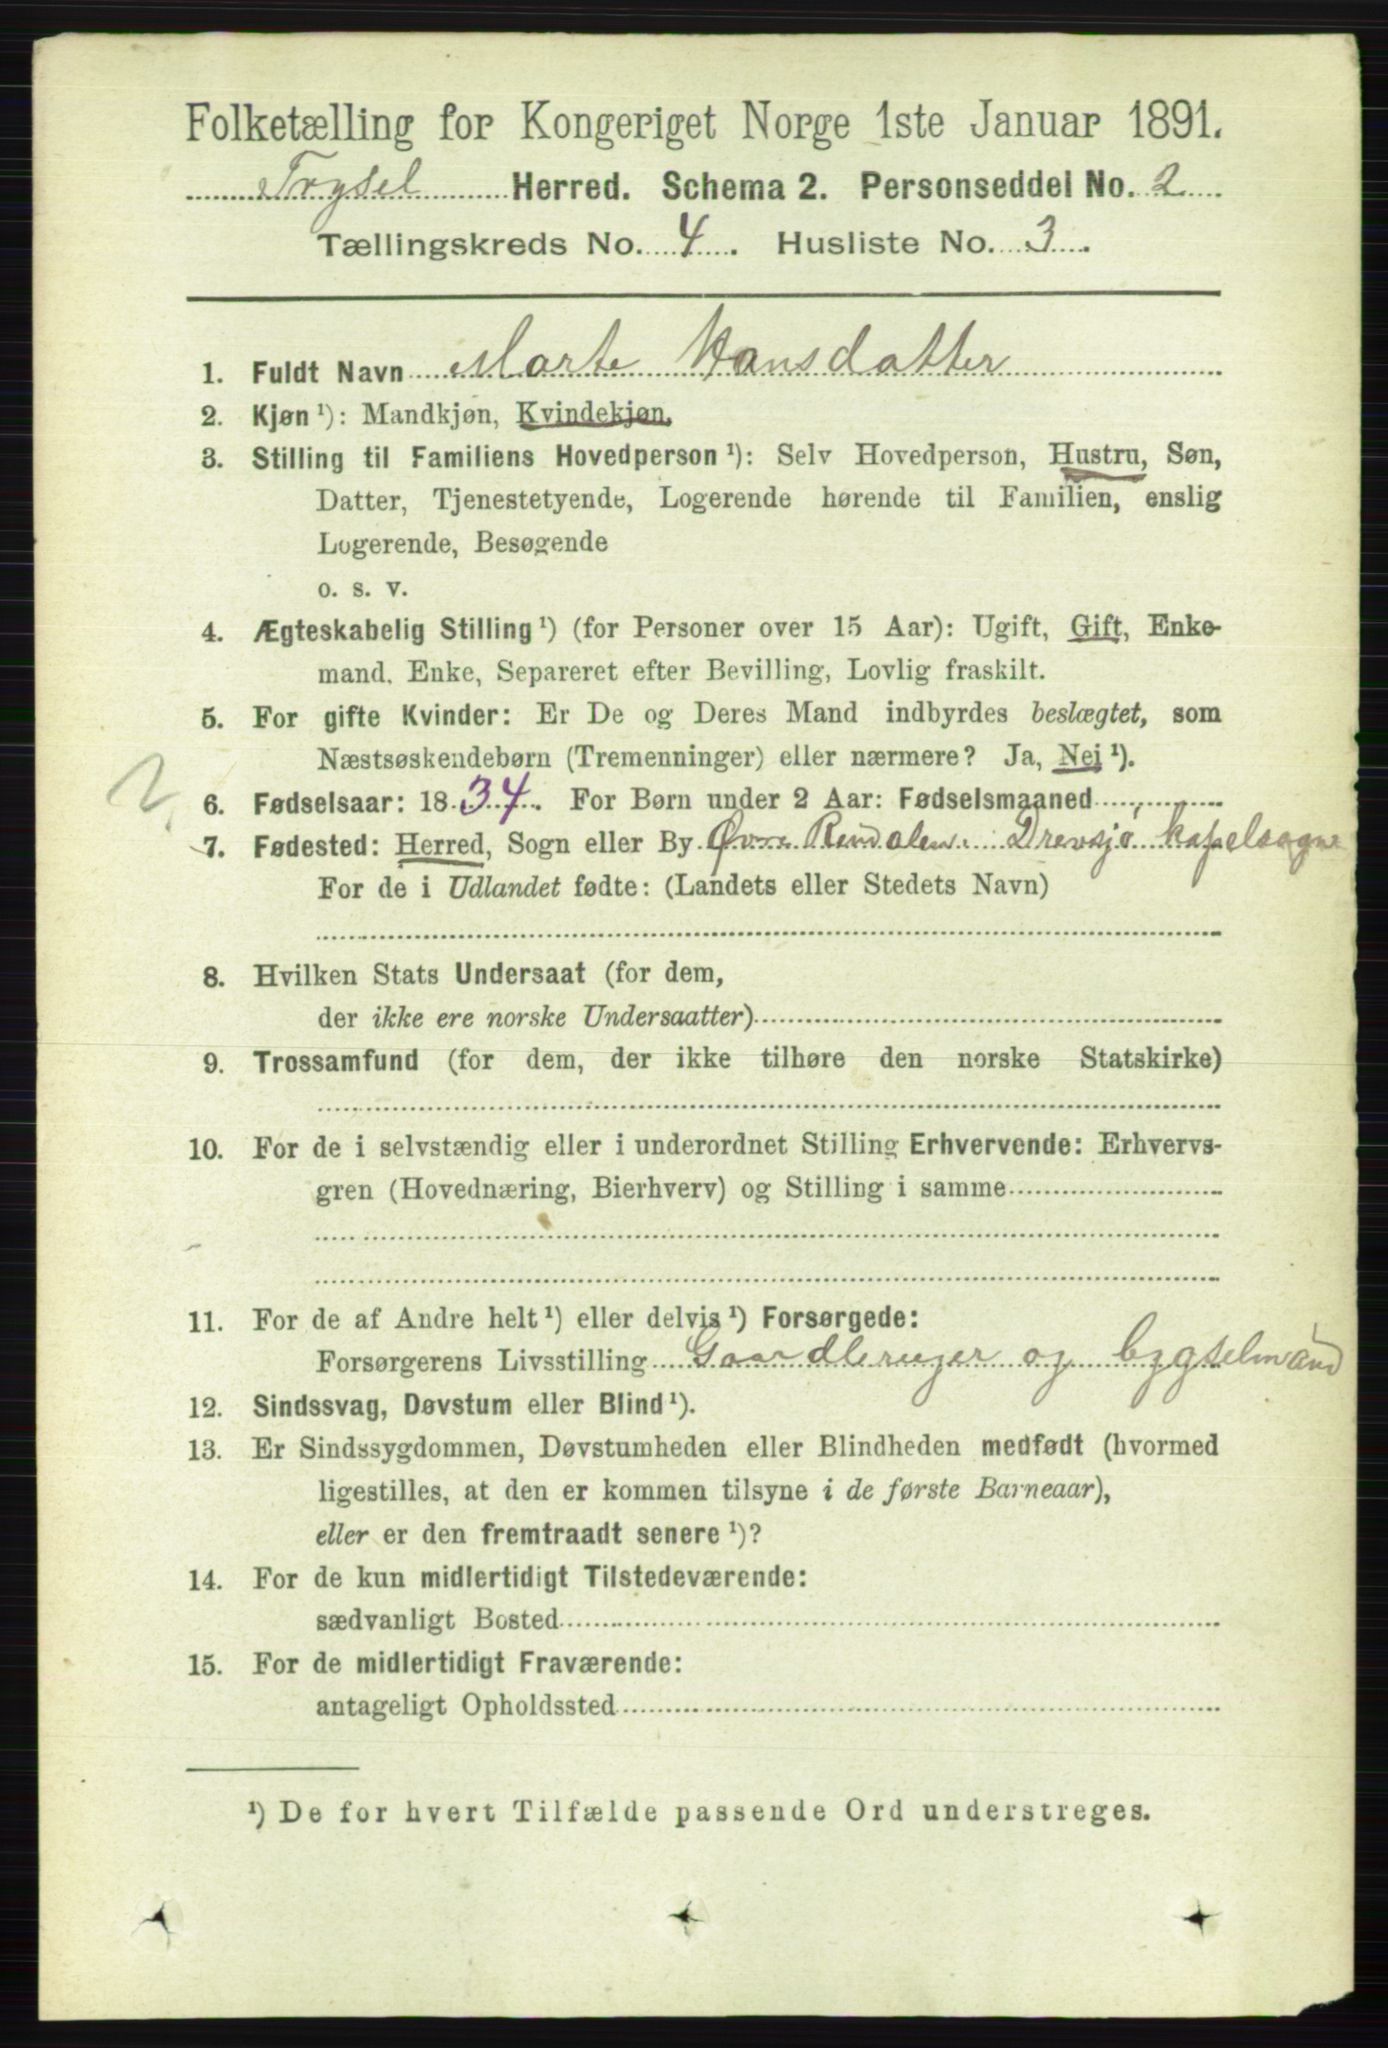 Folketælling for Kongeriget Norge 1ste Januar 1891.
Trysel Herred. Schema 2. Personseddel No. 2
Tællingskreds No. 4. Husliste No. 3.
1. Fuldt Navn Marte Hansdatter
2. Kjøn ¹): Mandkjøn, Kvindekjøn.
3. Stilling til Familiens Hovedperson ¹): Selv Hovedperson, Hustru, Søn,
Datter, Tjenestetyende, Logerende hørende til Familien, enslig
Logerende, Besøgende
o. s. v.
4. Ægteskabelig Stilling ¹) (for Personer over 15 Aar): Ugift, Gift, Enke-
mand, Enke, Separeret efter Bevilling, Lovlig fraskilt.
5. For gifte Kvinder: Er De og Deres Mand indbyrdes beslægtet, som
Næstsøskendebørn (Tremenninger) eller nærmere? Ja, Nei ¹).
2
6. Fødselsaar: 1834. For Børn under 2 Aar: Fødselsmaaned
7. Fødested: Herred, Sogn eller By Øvre Rendalen. Drevsjø kapelsogn
For de i Udlandet fødte: (Landets eller Stedets Navn)
8. Hvilken Stats Undersaat (for dem,
der ikke ere norske Undersaatter)
9. Trossamfund (for dem, der ikke tilhøre den norske Statskirke)
10. For de i selvstændig eller i underordnet Stilling Erhvervende: Erhvervs-
gren (Hovednæring, Bierhverv) og Stilling i samme
11. For de af Andre helt ¹) eller delvis ¹) Forsørgede:
Forsørgerens Livsstilling Gaardbruger og bygselmand
12. Sindssvag, Døvstum eller Blind ¹).
13. Er Sindssygdommen, Døvstumheden eller Blindheden medfødt (hvormed
ligestilles, at den er kommen tilsyne i de første Barneaar),
eller er den fremtraadt senere ¹)?
14. For de kun midlertidigt Tilstedeværende:
sædvanligt Bosted
15. For de midlertidigt Fraværende:
antageligt Opholdssted
¹) De for hvert Tilfælde passende Ord understreges.